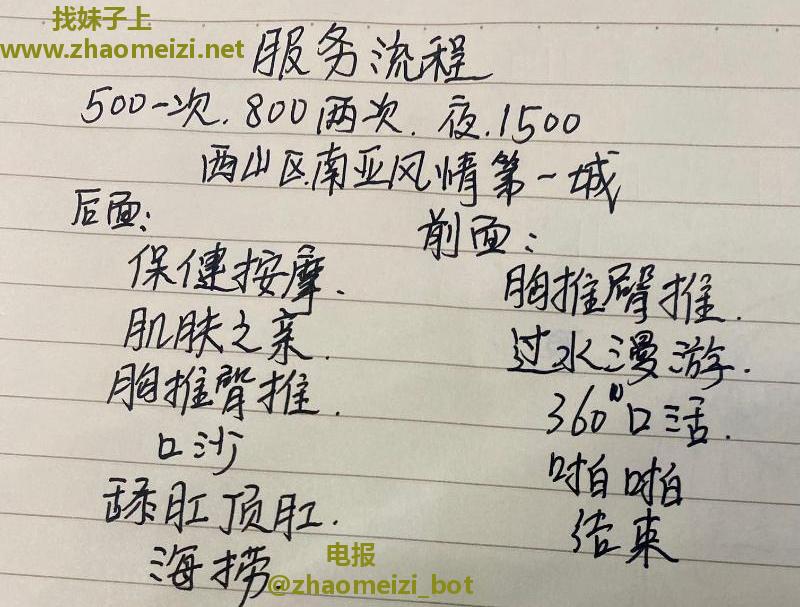 找妹子上
www.zhaomeizi.net
服务流程
500一次.800两次.夜.1500
西山区南亚风情第一城
后面:
保健按摩.
肌肤之亲.
胸推臀推.
口沙
舔肛顶肛.
海捞.
前面:
胸推臀推.
过水漫游.
360°口活.
啪啪
结束
电报
@zhaomeizi_bot